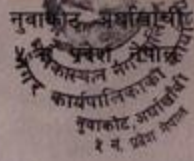 नुवाकोट, अर्घाखाँची
५ नं. प्रदेश नेपाल
नगर कार्यपालिकाको
नुवाकोट, अर्घाखाँची
५ नं. प्रदेश नेपाल